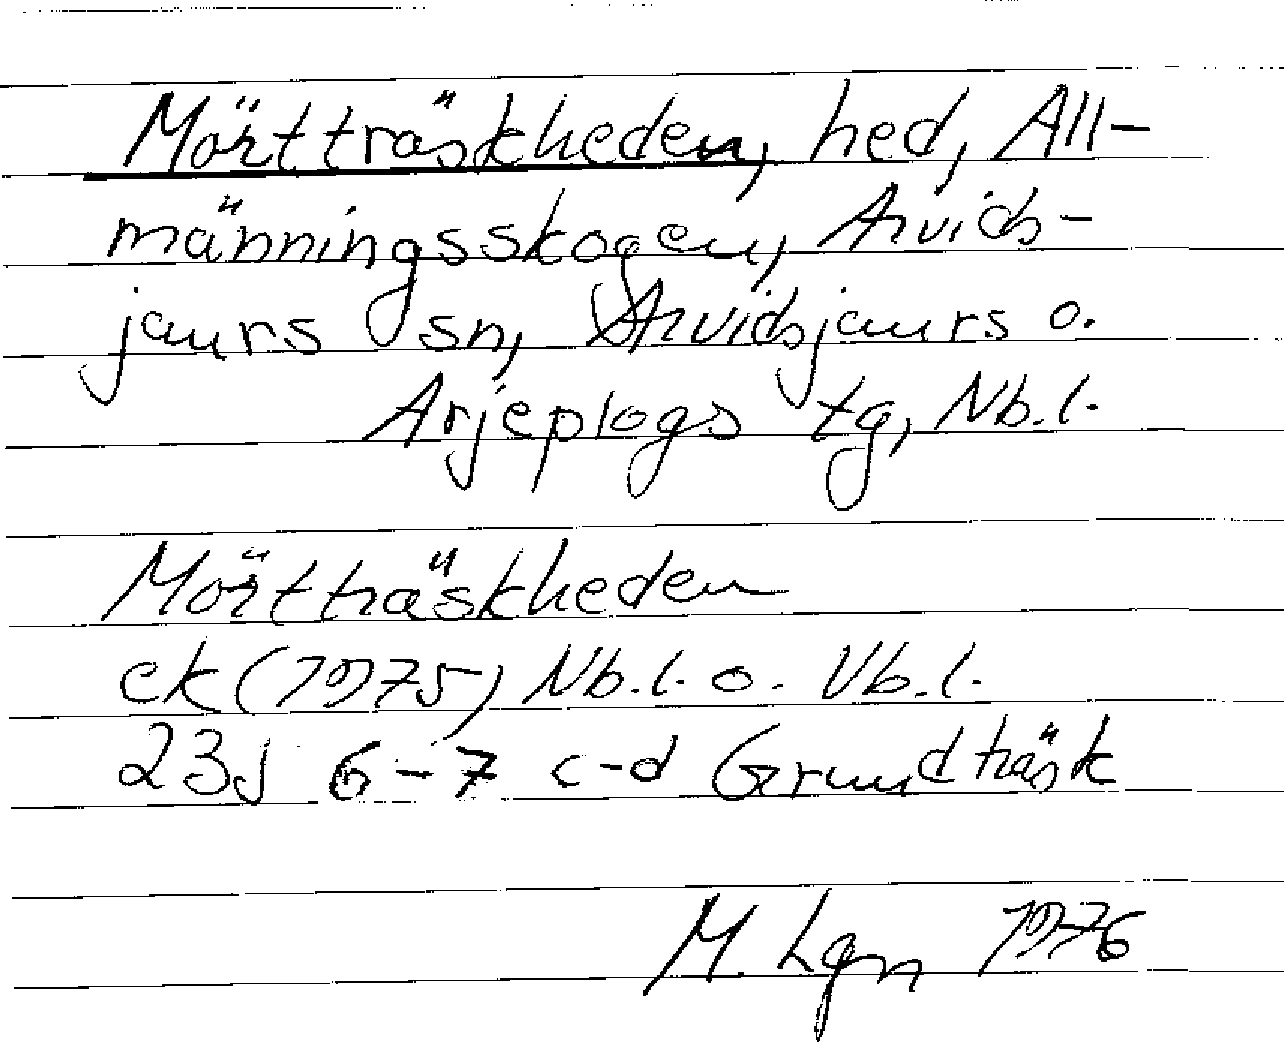 Mörtträskheden, hed, All-
männingsskogen, Arvids-
jaurs sn, Arvidsjaurs o.
Arjeplogs tg, Nb.l.
Mörtträskheden
ek (1975) Nb.l. o. Vb.l.
23J 6-7 c-d Grundträsk
M. Lgn 1976